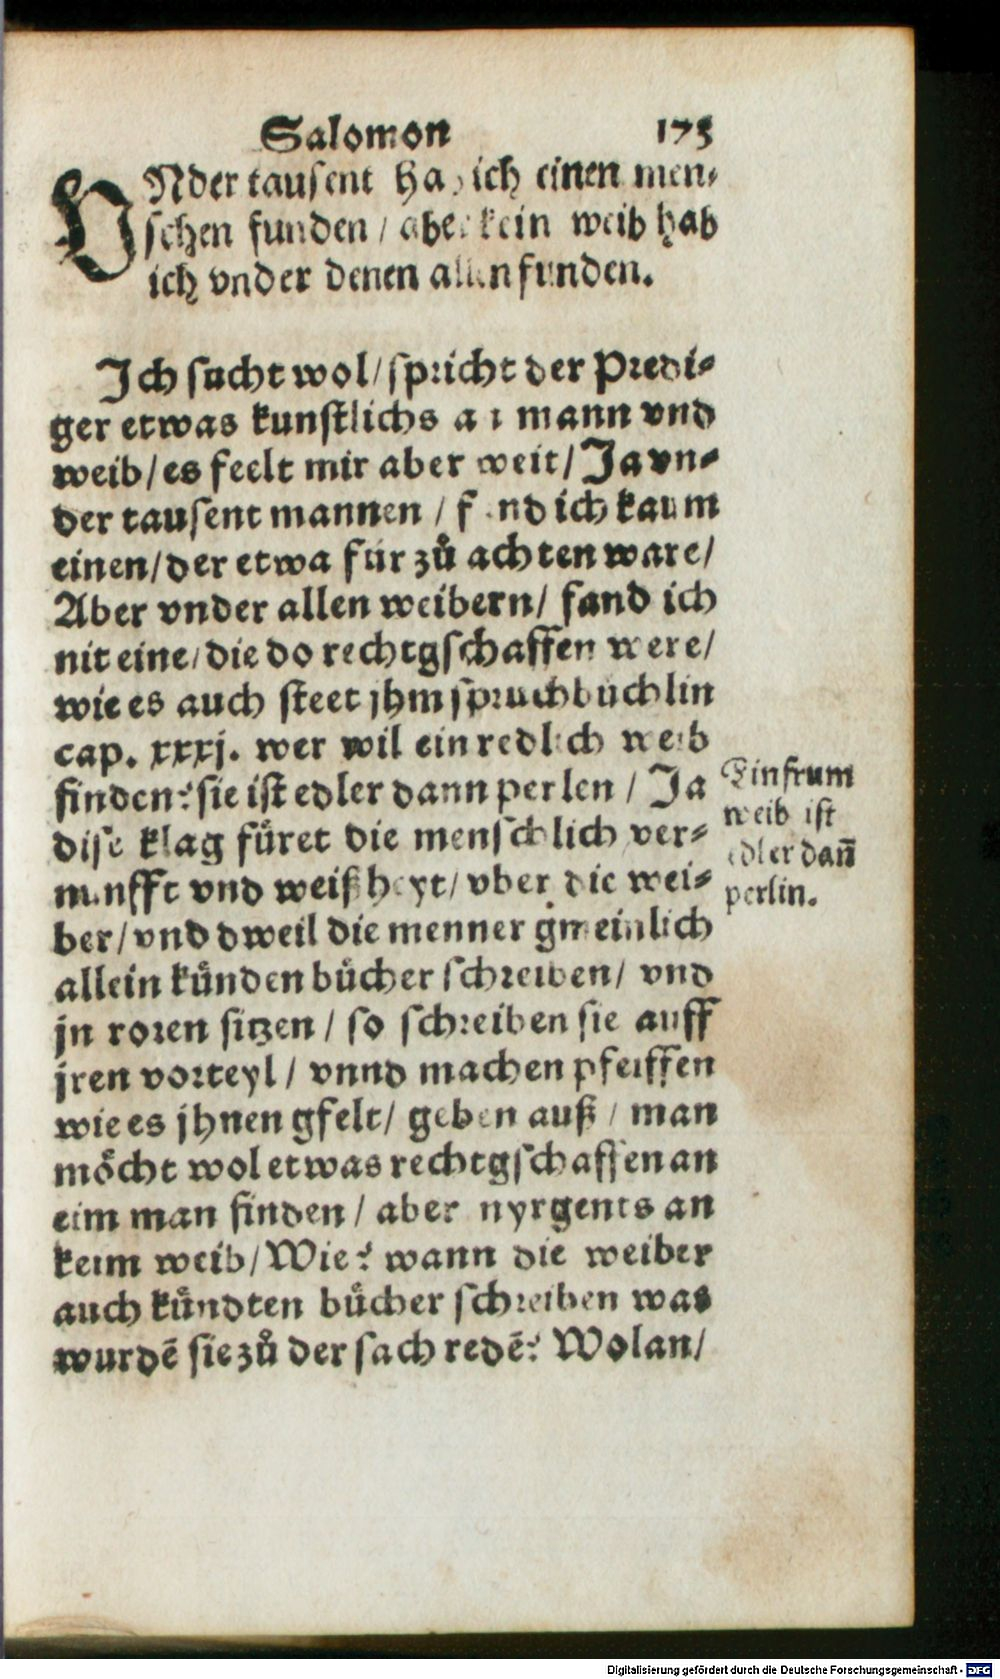 Salomon 175
VNder tausent hab ich einen men⸗
schen funden / aber kein weib hab
ich vnder denen allen funden.
Ich sucht wol / spricht der Predi⸗
ger etwas kunstlichs an mann vnd
weib / es feelt mir aber weit / Ja vn⸗
der tausent mannen / fand ich kaum
einen / der etwa für zů achten ware /
Aber vnder allen weibern / fand ich
nit eine / die do rechtgschaffen were /
wie es auch steet jhm spruchbuchlin
cap. xxxj. wer wil ein redlich weib
finden? sie ist edler dann perlen / Ja
dise klag füret die menschlich ver⸗
nunfft vnd weißheyt / vber die wei⸗
ber / vnd dweil die menner gmeinlich
allein künden bücher schreiben / vnd
jn roren sitzen / so schreiben sie auff
jren vorteyl / vnnd machen pfeiffen
wie es jhnen gfelt / geben auß / man
möcht wol etwas rechtgschaffen an
eim man finden / aber nyrgents an
keim weib / Wie? wann die weiber
auch kündten bücher schreiben was
wurdē sie zů der sach redē? Wolan /
Ein frum
weib ist
edler dañ
perlin.
Digitalisierung gefördert durch die Deutsche Forschungsgemeinschaft - DFG